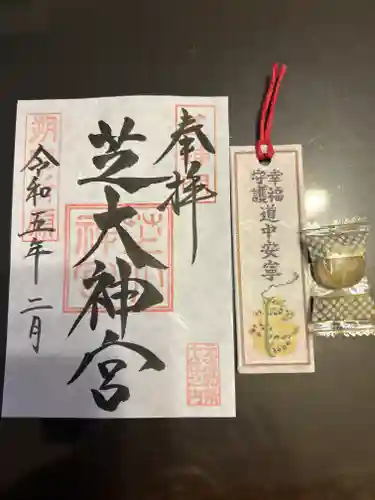 奉拝
芝大神宮
令和五年二月
幸福
守護
道中安寧